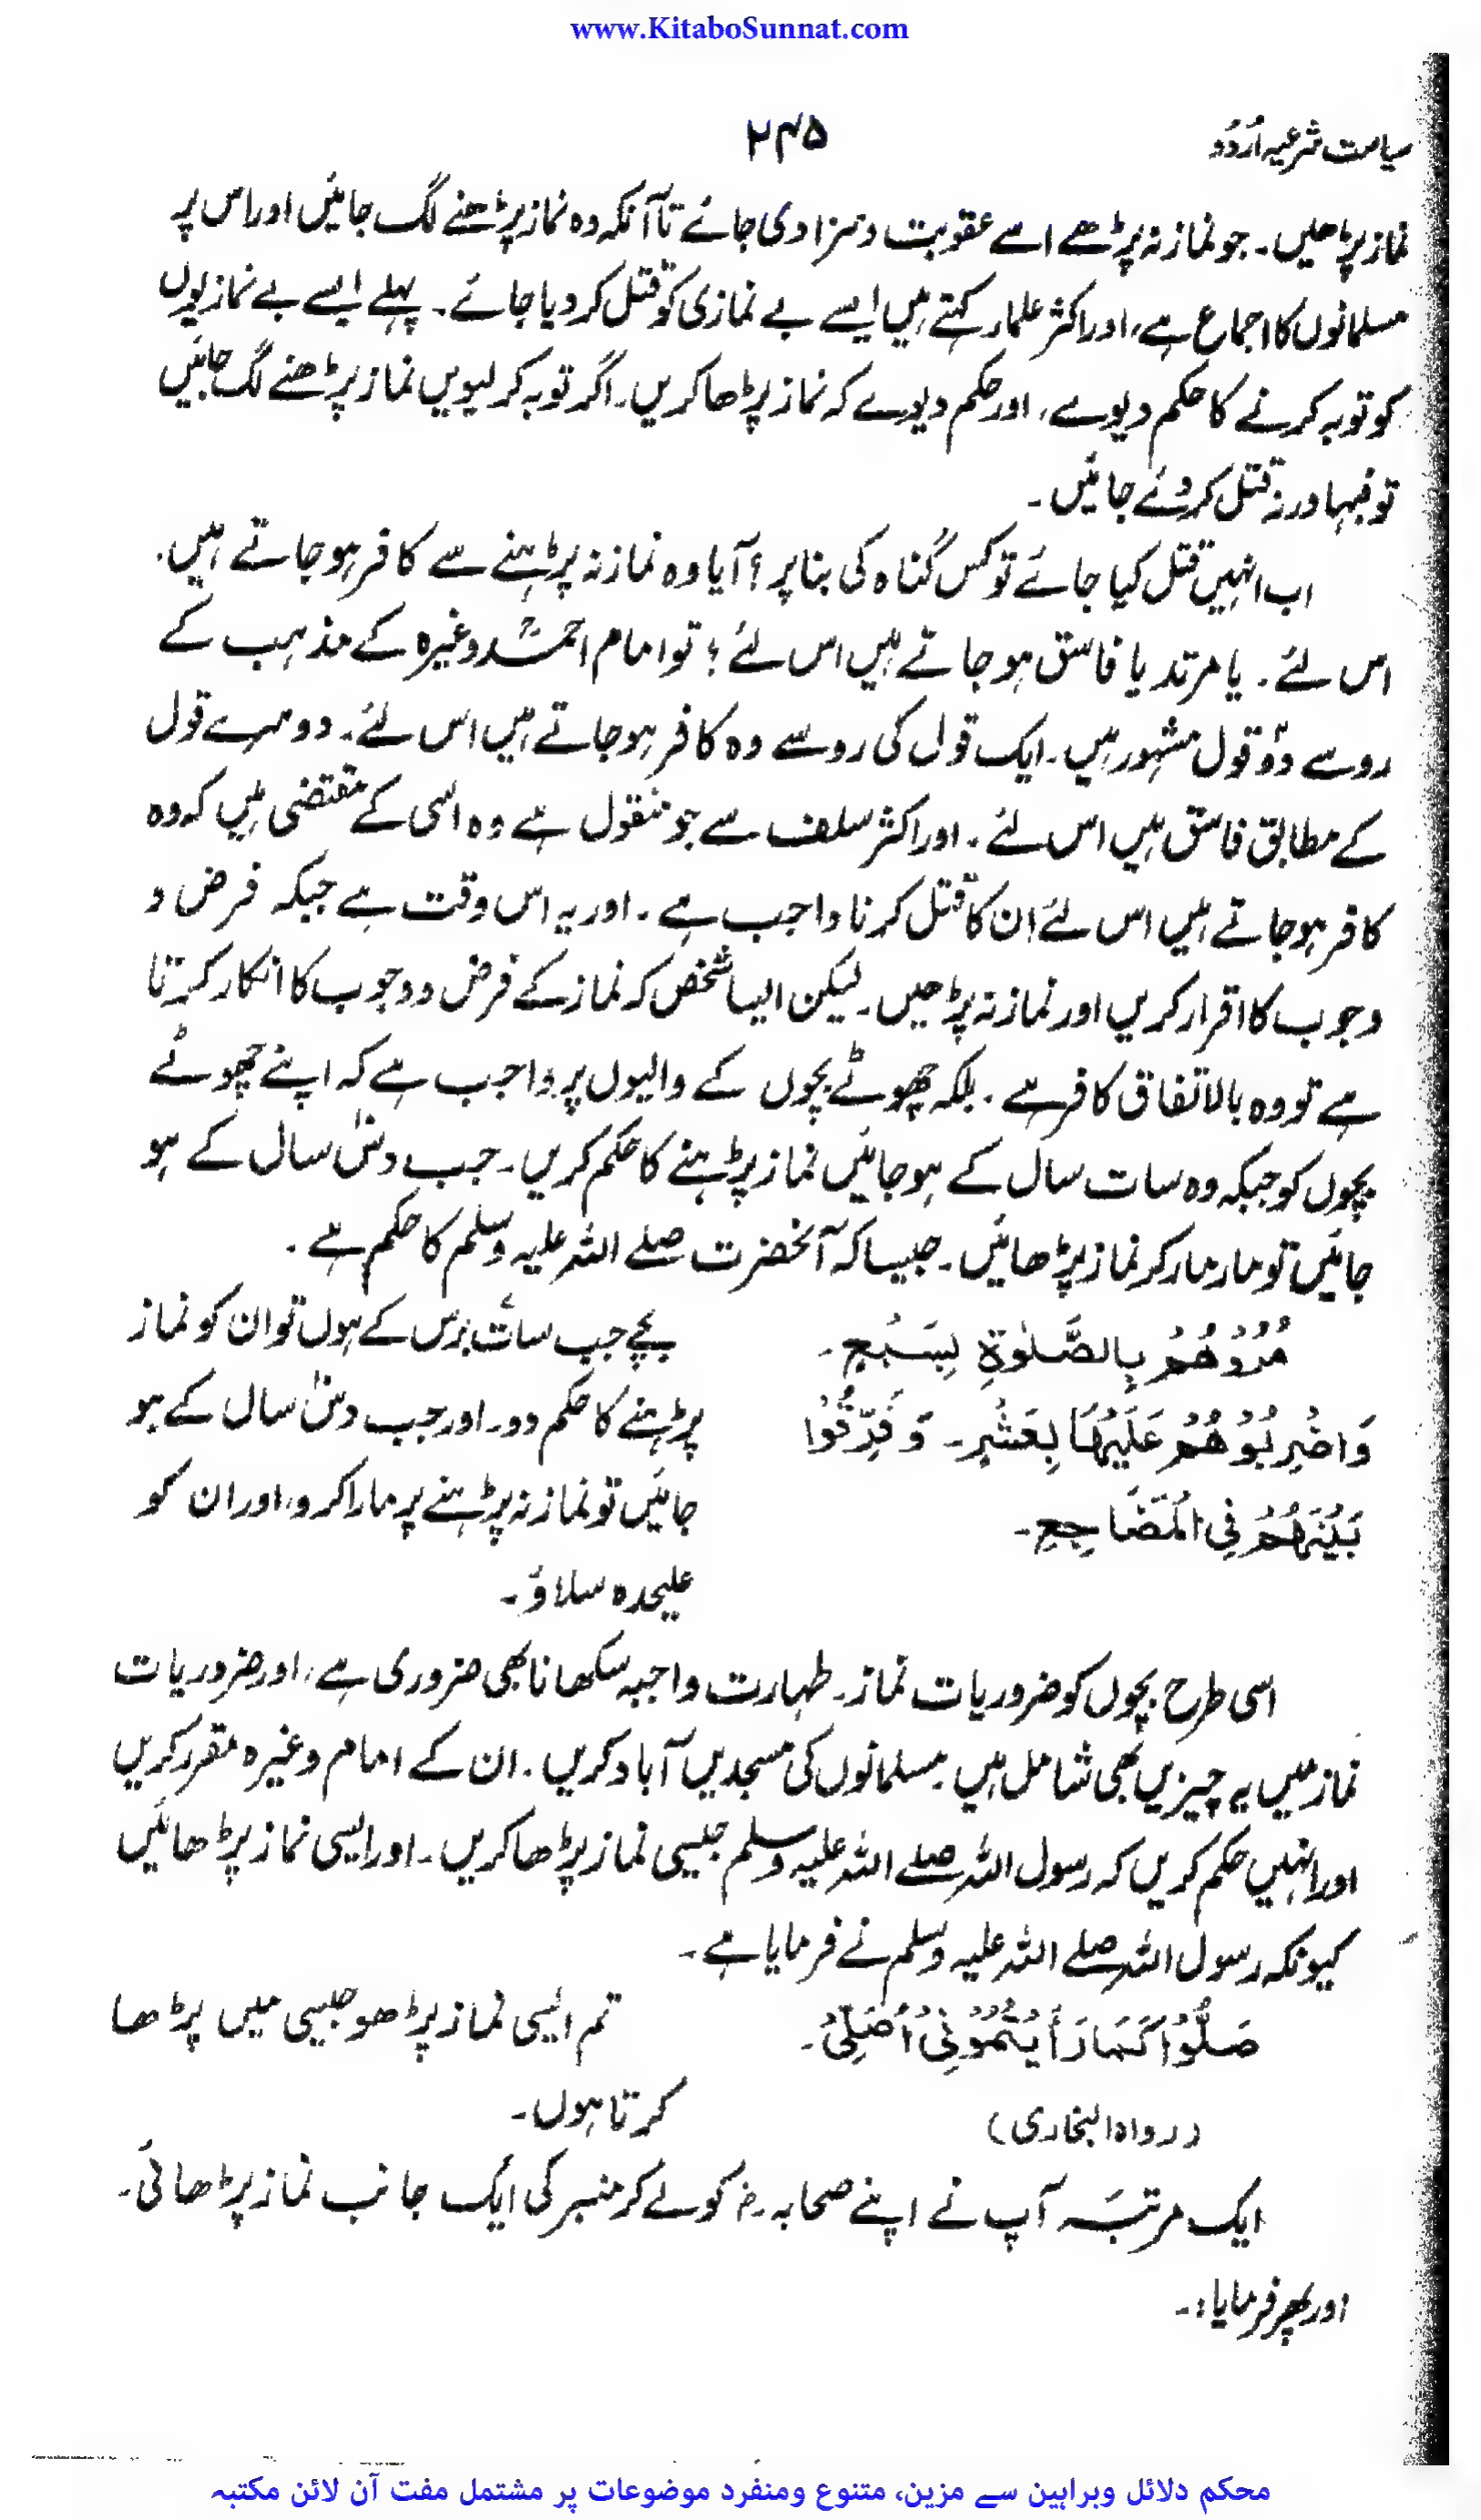 www.KitaboSunnat.com
سیاست شرعیہ اُردُو
۲۴۵
نماز پڑھیں۔ جو نماز نہ پڑھے اسے عقوبت و سزا دی جائے تاآنکہ وہ نماز پڑھنے لگ جائیں اور اس پر
مسلمانوں کا اجماع ہے، اور اکثر علماء کہتے ہیں ایسے بے نمازی کو قتل کر دیا جائے۔ پہلے ایسے بے نمازیوں
کو توبہ کرنے کا حکم دیوے، اور حکم دیوے کہ نماز پڑھا کریں۔ اگر توبہ کر لیویں نماز پڑھنے لگ جائیں
تو فبہا ورنہ قتل کر دئے جائیں۔
اب انہیں قتل کیا جائے تو کس گناہ کی بنا پر؟ آیا وہ نماز نہ پڑہنے سے کافر ہو جاتے ہیں۔
اس لئے۔ یا مرتد یا فاسق ہو جاتے ہیں اس لئے؟ تو امام احمدؒ وغیرہ کے مذہب کے
رو سے دو قول مشہور ہیں۔ ایک قول کی رو سے وہ کافر ہو جاتے ہیں اس لئے۔ دوسرے قول
کے مطابق فاسق ہیں اس لئے۔ اور اکثر سلف سے جو منقول ہے وہ اسی کے مقتضی ہیں کہ وہ
کافر ہو جاتے ہیں اس لئے ان کا قتل کرنا واجب ہے۔ اور یہ اس وقت ہے جبکہ فرض و
وجوب کا اقرار کریں اور نماز نہ پڑھیں۔ لیکن ایسا شخص کہ نماز کے فرض و وجوب کا انکار کرتا
ہے تو وہ بالاتفاق کافر ہے۔ بلکہ چھوٹے بچوں کے والیوں پر واجب ہے کہ اپنے چھوٹے
بچوں کو جبکہ وہ سات سال کے ہو جائیں نماز پڑہنے کا حکم کریں۔ جب دس سال کے ہو
جائیں تو مار مار کر نماز پڑھائیں۔ جیسا کہ آنحضرت صلے اللہ علیہ وسلم کا حکم ہے۔
مُرُوْهُمْ بِالصَّلٰوةِ لِسَبْعٍ۔
وَاضْرِبُوْهُمْ عَلَيْهَا لِعَشْرٍ۔ وَفَرِّقُوْا
بَيْنَهُمْ فِى الْمَضَاجِعِ۔
بچے جب سات برس کے ہوں تو ان کو نماز
پڑہنے کا حکم دو۔ اور جب دس سال کے ہو
جائیں تو نماز نہ پڑہنے پر مارا کرو، اور ان کو
علیحدہ سلاؤ۔
اسی طرح بچوں کو ضروریات نماز۔ طہارت واجبہ سکھانا بھی ضروری ہے، اور ضروریات
نماز میں یہ چیزیں بھی شامل ہیں۔ مسلمانوں کی مسجدیں آباد کریں۔ ان کے امام وغیرہ مقرر کریں
اور انہیں حکم کریں کہ رسول اللہ صلے اللہ علیہ وسلم جیسی نماز پڑھا کریں۔ اور ایسی نماز پڑھائیں
کیونکہ رسول اللہ صلے اللہ علیہ وسلم نے فرمایا ہے۔
صَلُّوْا كَمَا رَأَيْتُمُوْنِىْ اُصَلِّىْ۔
(رواہ البخاری)
تم ایسی نماز پڑھو جیسی میں پڑھا
کرتا ہوں۔
ایک مرتبہ آپ نے اپنے صحابہ رض کو لے کر منبر کی ایک جانب نماز پڑھائی۔
اور پھر فرمایا:۔
محکم دلائل وبراہین سے مزین، متنوع ومنفرد موضوعات پر مشتمل مفت آن لائن مکتبہ